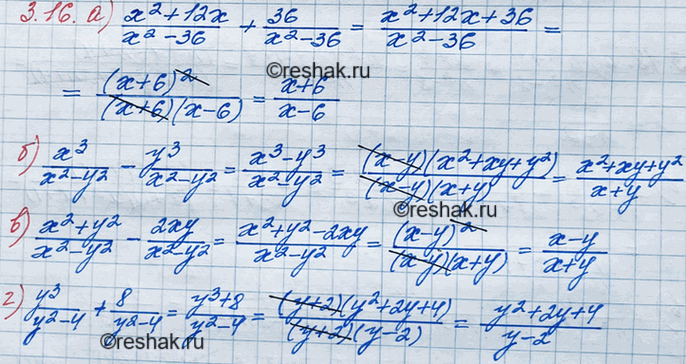 3.16. а) (x²+12x)/(x²-36) + 36/(x²-36) = (x²+12x+36)/(x²-36) =
©reshak.ru
= (x+6)²/((x+6)(x-6)) = (x+6)/(x-6)
б) x³/(x²-y²) - y³/(x²-y²) = (x³-y³)/(x²-y²) = ((x-y)(x²+xy+y²))/((x-y)(x+y)) = (x²+xy+y²)/(x+y)
©reshak.ru
в) (x²+y²)/(x²-y²) - 2xy/(x²-y²) = (x²+y²-2xy)/(x²-y²) = (x-y)²/((x-y)(x+y)) = (x-y)/(x+y)
г) y³/(y²-4) + 8/(y²-4) = (y³+8)/(y²-4) = ((y+2)(y²+2y+4))/((y+2)(y-2)) = (y²+2y+4)/(y-2)
©reshak.ru